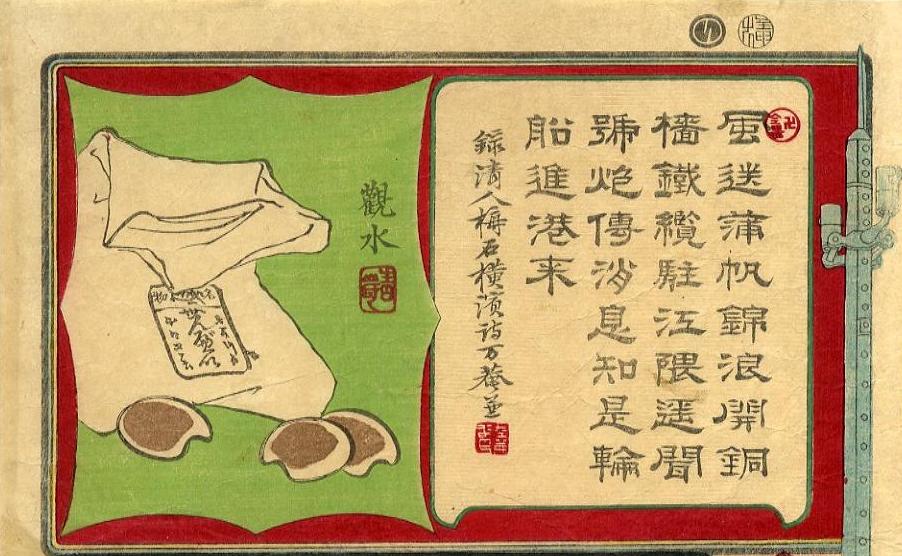 風送蒲帆錦浪開銅
檣鐵纜駐江隈遥聞
號炮傳消息知是輪
船進港来
録清人梅石横濱詩万菴並
觀水